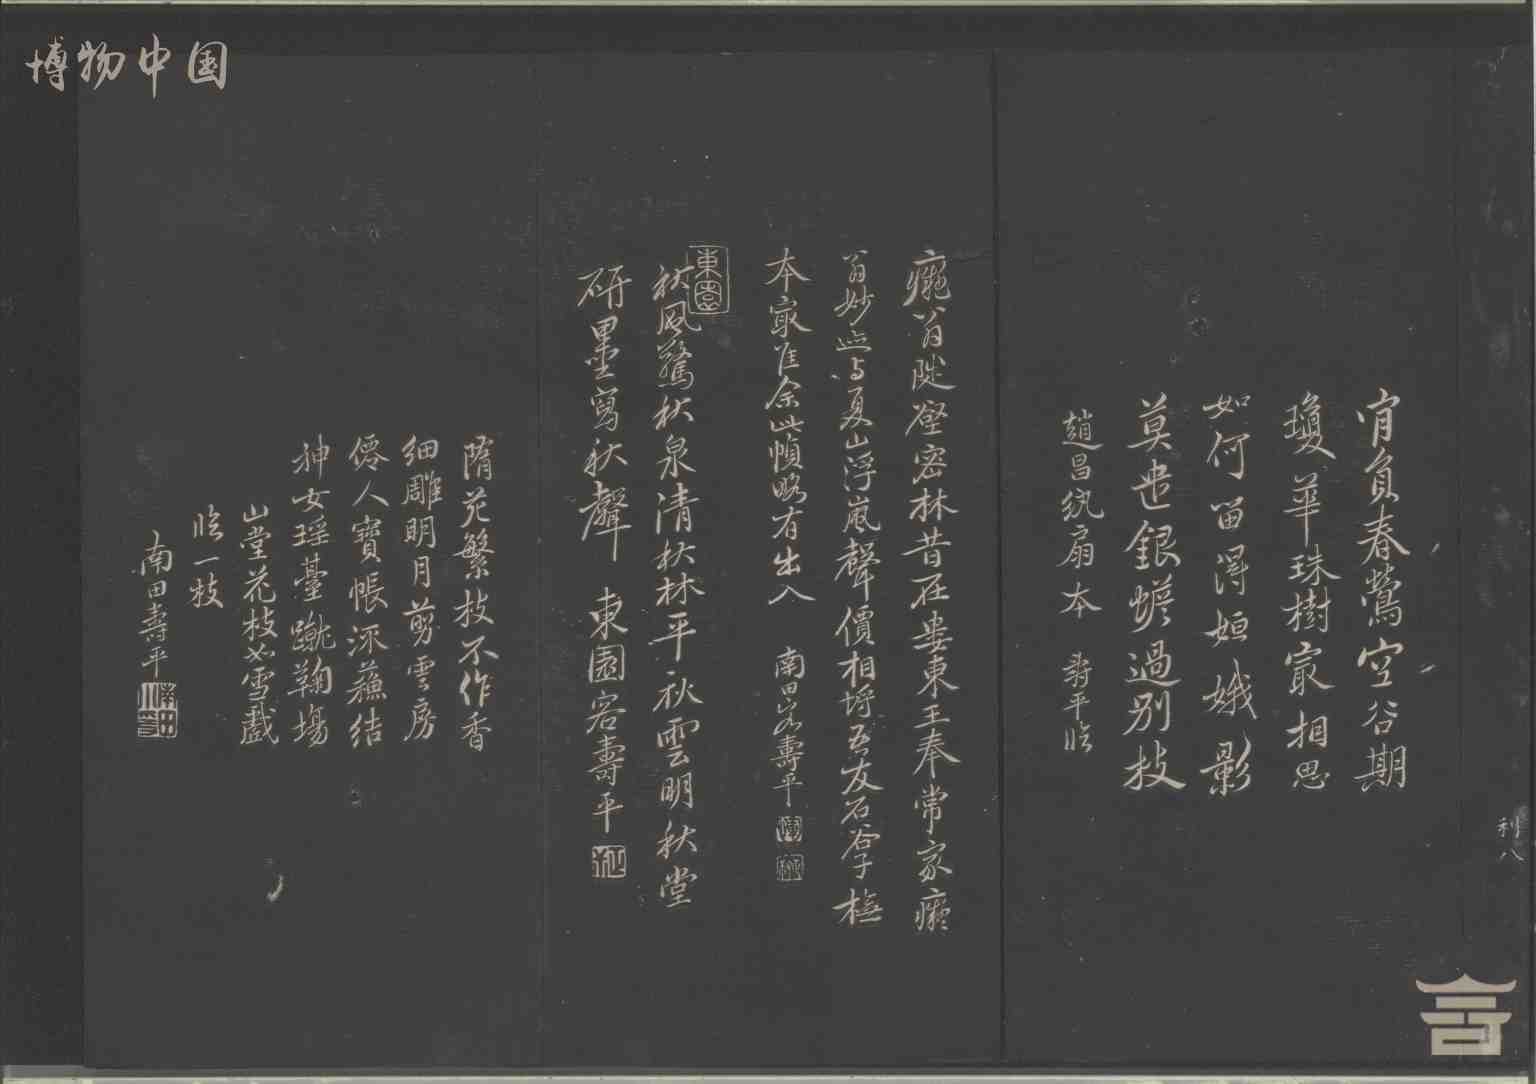 博物中国
肯負春鶯空谷期
瓊華珠樹最相思
如何留得姮娥影
莫遣銀蟾過別枝
趙昌紈扇本 壽平臨
癡翁陡壑密林昔在婁東王奉常家癡
翁妙迹与夏山浮嵐聲價相埒吾友石谷子橅
本最佳余此幀略有出入 南田客壽平
東園
秋風鶩秋泉清秋林平秋雲明秋堂
研墨寫秋聲 東園客壽平
隋苑繁枝不作香
細雕明月剪雲房
僊人寶帳流蘇結
神女瑶臺蹴鞠場
山堂花枝如雪戲
臨一枝
南田壽平
利八